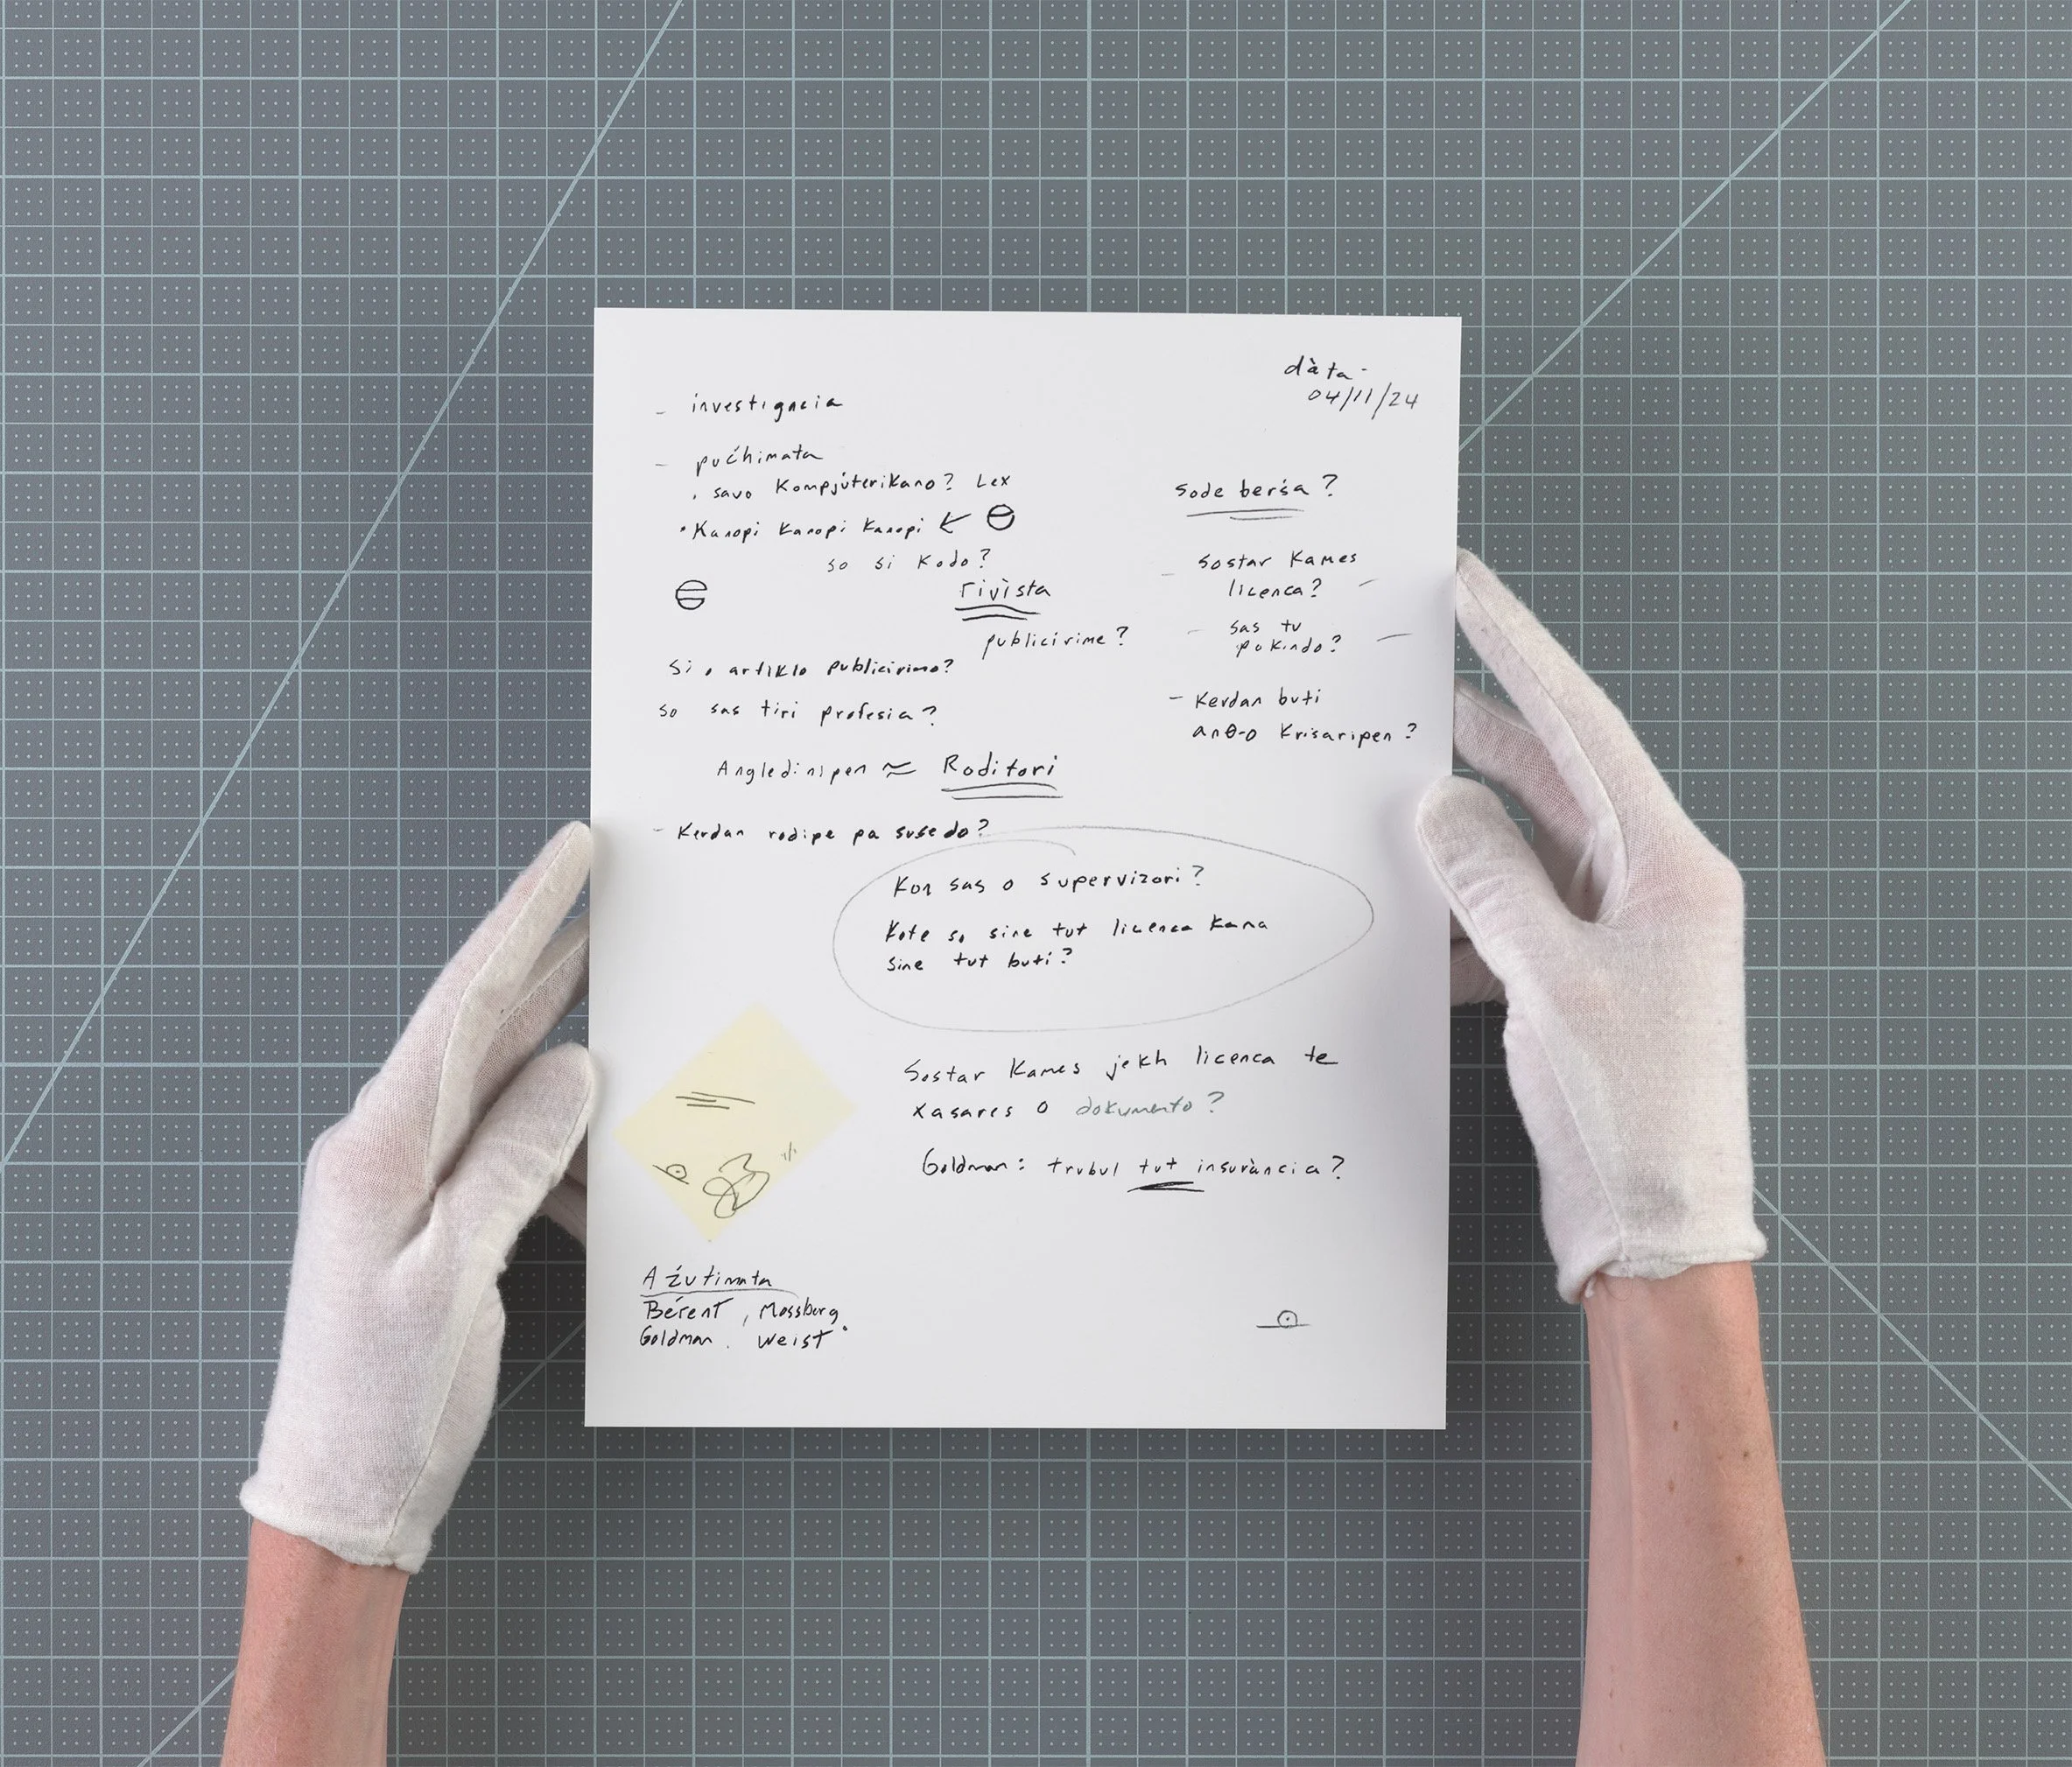 dàta-
04/11/24
- investigacia
- pućhimata
. savo Kompjúterikano? Lex
• Kanopi Kanopi Kanopi
so si Kodo?
rivista
publicirime?
Si o artiklo publicirimo?
so sas tiri profesia?
Angledinipen ≈ Roditori
- Kerdan rodipe pa susedo?
Sode berśa?
- Sostar Kames -
licenca?
- sas tu -
pokindo?
- Kerdan buti
anθ-o Krisaripen?
Kon sas o supervizori?
Kote so sine tut licenca kana
sine tut buti?
Sostar Kames jekh licenca te
xasares o dokumento?
Goldman: trubul tut insurància?
Aźutimata
Bérent, Mossberg
Goldman. Weist